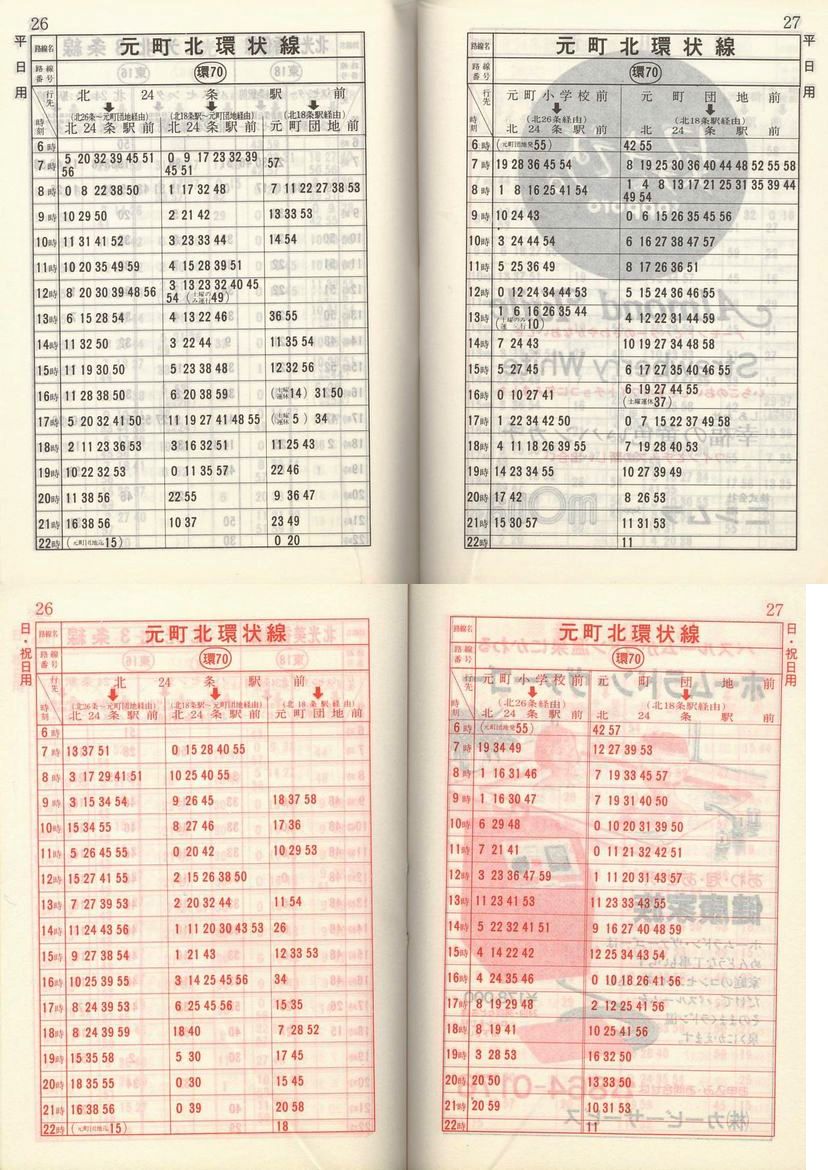 26
平日用
路線名 元町北環状線
路線番号 環70
行先 北 24 条 駅 前
(北26条〜元町団地経由) (北18条駅〜元町団地経由) (北18条駅経由)
時刻 北24条駅前 北24条駅前 元町団地前
6時
7時 5 20 32 39 45 51 56 0 9 17 23 32 39 45 51 57
8時 0 8 22 38 50 1 17 32 48 7 11 22 27 38 53
9時 10 29 50 2 21 42 13 33 53
10時 11 31 41 52 3 23 33 44 14 54
11時 10 20 35 49 59 4 15 28 39 51
12時 8 20 30 39 48 56 3 13 23 32 40 45 54 (土曜のみ運行49)
13時 6 15 28 54 4 13 22 46 36 55
14時 11 32 50 3 22 44 11 35 54
15時 11 19 30 50 5 23 38 48 12 32 56
16時 11 28 38 50 6 20 38 59 (土曜運休14) 31 50
17時 5 20 32 41 50 11 19 27 41 48 55 (土曜運休5) 34
18時 2 11 23 36 53 3 16 32 51 11 25 43
19時 10 22 32 53 0 11 35 57 22 46
20時 11 38 56 22 55 9 36 47
21時 16 38 56 10 37 23 49
22時 (元町団地迄15) 0 20
27
平日用
路線名 元町北環状線
路線番号 環70
行先 元町小学校前 元町団地前
(北26条経由) (北18条駅経由)
時刻 北24条駅前 北24条駅前
6時 (元町団地発55) 42 55
7時 19 28 36 45 54 8 19 25 30 36 40 44 48 52 55 58
8時 1 8 16 25 41 54 1 4 8 13 17 21 25 31 35 39 44 49 54
9時 10 24 43 0 6 15 26 35 45 56
10時 3 24 44 54 6 16 27 38 47 57
11時 5 25 36 49 8 17 26 36 51
12時 0 12 24 34 44 53 5 15 24 36 46 55
13時 1 6 16 26 35 44 (土曜のみ運行10) 4 12 22 31 44 59
14時 7 24 43 10 19 27 34 48 58
15時 5 27 45 6 17 27 35 40 46 55
16時 0 10 27 41 6 19 27 44 55 (土曜運休37)
17時 1 22 34 42 50 0 7 15 22 37 49 58
18時 4 11 18 26 39 55 7 19 28 40 53
19時 14 23 34 55 10 27 39 49
20時 17 42 8 26 53
21時 15 30 57 11 31 53
22時 11
26
日・祝日用
路線名 元町北環状線
路線番号 環70
行先 北 24 条 駅 前
(北26条〜元町団地経由) (北18条駅〜元町団地経由) (北18条駅経由)
時刻 北24条駅前 北24条駅前 元町団地前
6時
7時 13 37 51 0 15 28 40 55
8時 3 17 29 41 51 10 25 40 55
9時 3 15 34 54 9 26 45 18 37 58
10時 15 34 55 8 27 46 17 36
11時 5 26 45 55 0 20 42 10 29 53
12時 15 27 41 55 2 15 26 38 50
13時 7 27 39 53 2 20 32 44 11 54
14時 11 24 43 56 1 11 20 30 43 53 26
15時 9 27 38 54 1 21 43 12 33 53
16時 10 25 39 55 3 14 25 45 56 34
17時 8 24 39 53 6 25 45 56 15 35
18時 8 24 39 59 18 40 7 28 52
19時 15 35 58 5 30 17 45
20時 18 35 55 0 30 15 45
21時 16 38 56 0 39 20 58
22時 (元町団地迄15) 18
27
日・祝日用
路線名 元町北環状線
路線番号 環70
行先 元町小学校前 元町団地前
(北26条経由) (北18条駅経由)
時刻 北24条駅前 北24条駅前
6時 (元町団地発55) 42 57
7時 19 34 49 12 27 39 53
8時 1 16 31 46 7 19 33 45 57
9時 1 16 30 47 7 19 31 40 50
10時 6 29 48 0 10 20 31 39 50
11時 7 21 41 0 11 21 32 42 51
12時 3 23 36 47 59 1 11 20 31 43 57
13時 11 23 41 53 11 23 33 43 55
14時 5 22 32 41 51 9 16 27 40 48 59
15時 4 14 22 42 12 25 34 43 54
16時 4 24 35 46 0 10 18 26 41 56
17時 8 19 29 48 2 12 25 41 56
18時 8 19 41 10 25 41 56
19時 3 28 53 16 32 50
20時 20 50 13 33 50
21時 20 59 10 31 53
22時 11